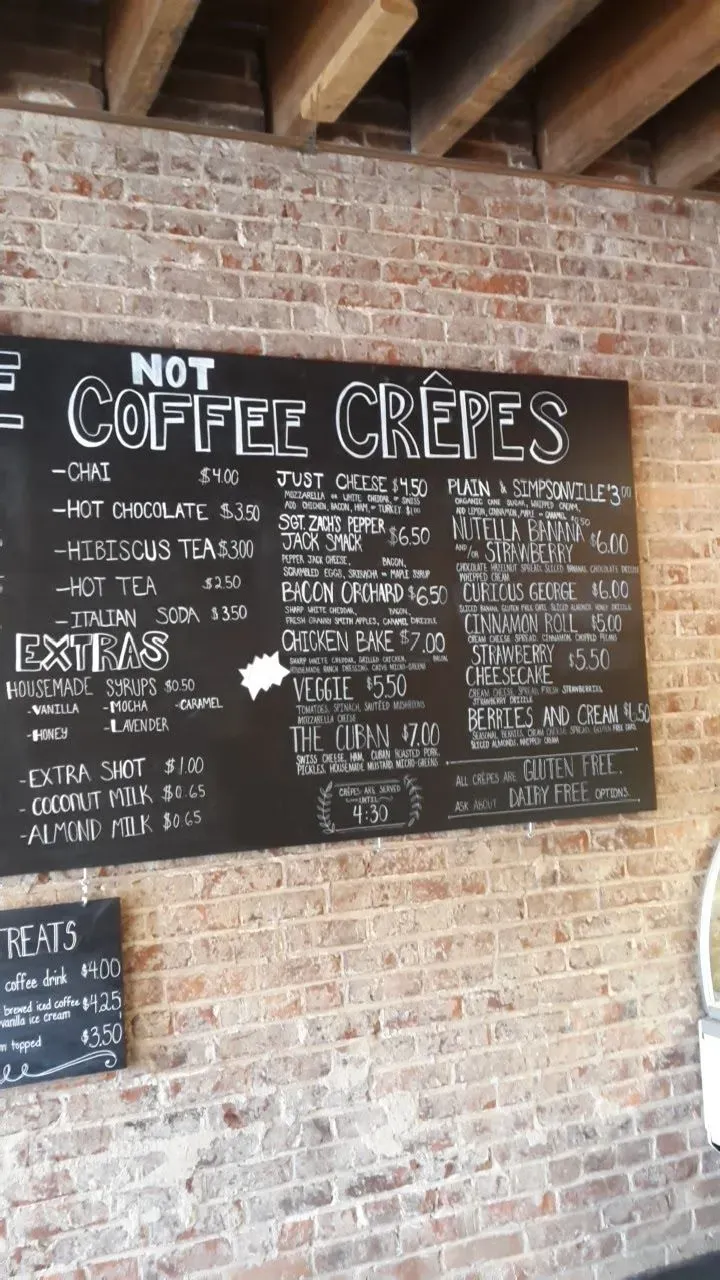 E
NOT
COFFEE
-CHAI $4.00
-HOT CHOCOLATE $3.50
-HIBISCUS TEA $300
-HOT TEA $2.50
-ITALIAN SODA $3.50
EXTRAS
HOUSEMADE SYRUPS $0.50
-VANILLA -MOCHA -CARAMEL
-HONEY -LAVENDER
-EXTRA SHOT $1.00
-COCONUT MILK $0.65
-ALMOND MILK $0.65
CRÊPES
JUST CHEESE $4.50
MOZZARELLA OR WHITE CHEDDAR OR SWISS
ADD CHICKEN, BACON, HAM, OR TURKEY $1.00
SGT. ZACH'S PEPPER
JACK SMACK $6.50
PEPPER JACK CHEESE, BACON,
SCRAMBLED EGGS, SRIRACHA OR MAPLE SYRUP
BACON ORCHARD $6.50
SHARP WHITE CHEDDAR, BACON,
FRESH GRANNY SMITH APPLES, CARAMEL DRIZZLE
CHICKEN BAKE $7.00
SHARP WHITE CHEDDAR, GRILLED CHICKEN, BACON,
HOUSEMADE RANCH DRESSING, CHIVE MICRO-GREENS
VEGGIE $5.50
TOMATOES, SPINACH, SAUTÉED MUSHROOMS
MOZZARELLA CHEESE
THE CUBAN $7.00
SWISS CHEESE, HAM, CUBAN ROASTED PORK,
PICKLES, HOUSEMADE MUSTARD, MICRO-GREENS
CRÊPES ARE SERVED
UNTIL
4:30
PLAIN & SIMPSONVILLE $3.00
ORGANIC CANE SUGAR, WHIPPED CREAM,
ADD LEMON, CINNAMON, MAPLE OR CARAMEL $.50
NUTELLA BANANA
AND/OR STRAWBERRY $6.00
CHOCOLATE HAZELNUT SPREAD, SLICED BANANAS, CHOCOLATE DRIZZLE
WHIPPED CREAM
CURIOUS GEORGE $6.00
SLICED BANANA, GLUTEN FREE OATS, SLICED ALMONDS, HONEY DRIZZLE
CINNAMON ROLL $5.00
CREAM CHEESE SPREAD, CINNAMON, CHOPPED PECANS
STRAWBERRY
CHEESECAKE $5.50
CREAM CHEESE, SPREAD, FRESH STRAWBERRIES,
STRAWBERRY DRIZZLE
BERRIES AND CREAM $6.50
SEASONAL BERRIES, CREAM CHEESE SPREAD, GLUTEN FREE OATS,
SLICED ALMONDS, WHIPPED CREAM
ALL CRÊPES ARE GLUTEN FREE.
ASK ABOUT DAIRY FREE OPTIONS.
TREATS
coffee drink $4.00
brewed iced coffee $4.25
vanilla ice cream
m topped $3.50